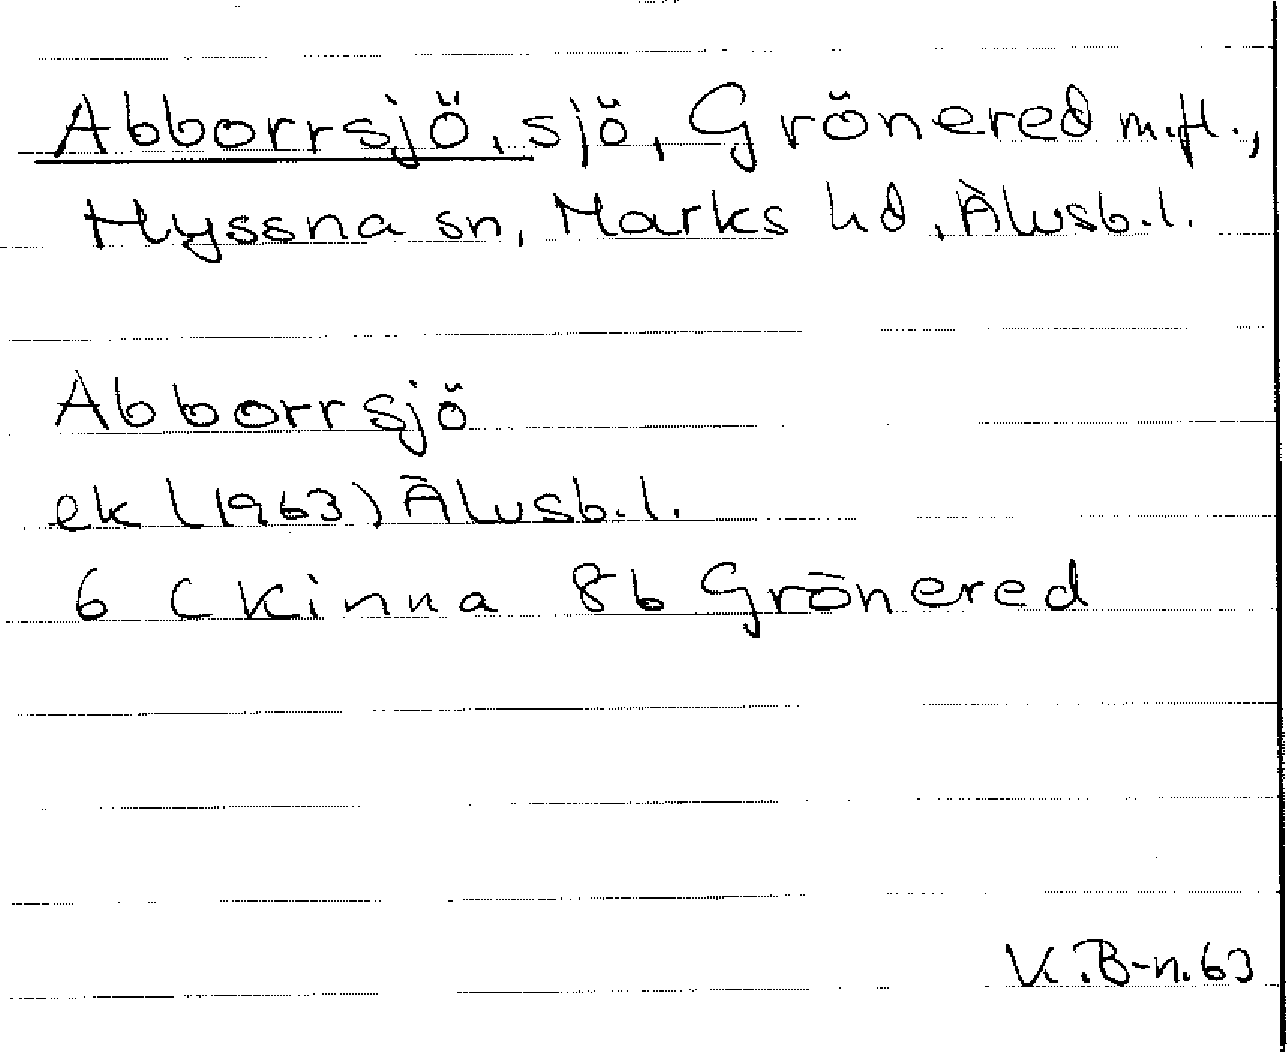 Abborrsjö, sjö, Grönered m.fl.,
Hyssna sn, Marks hd, Älvsb.l.
Abborrsjö
ek (1963) Älvsb.l.
6 C Kinna 8b Grönered
K.B-n.63